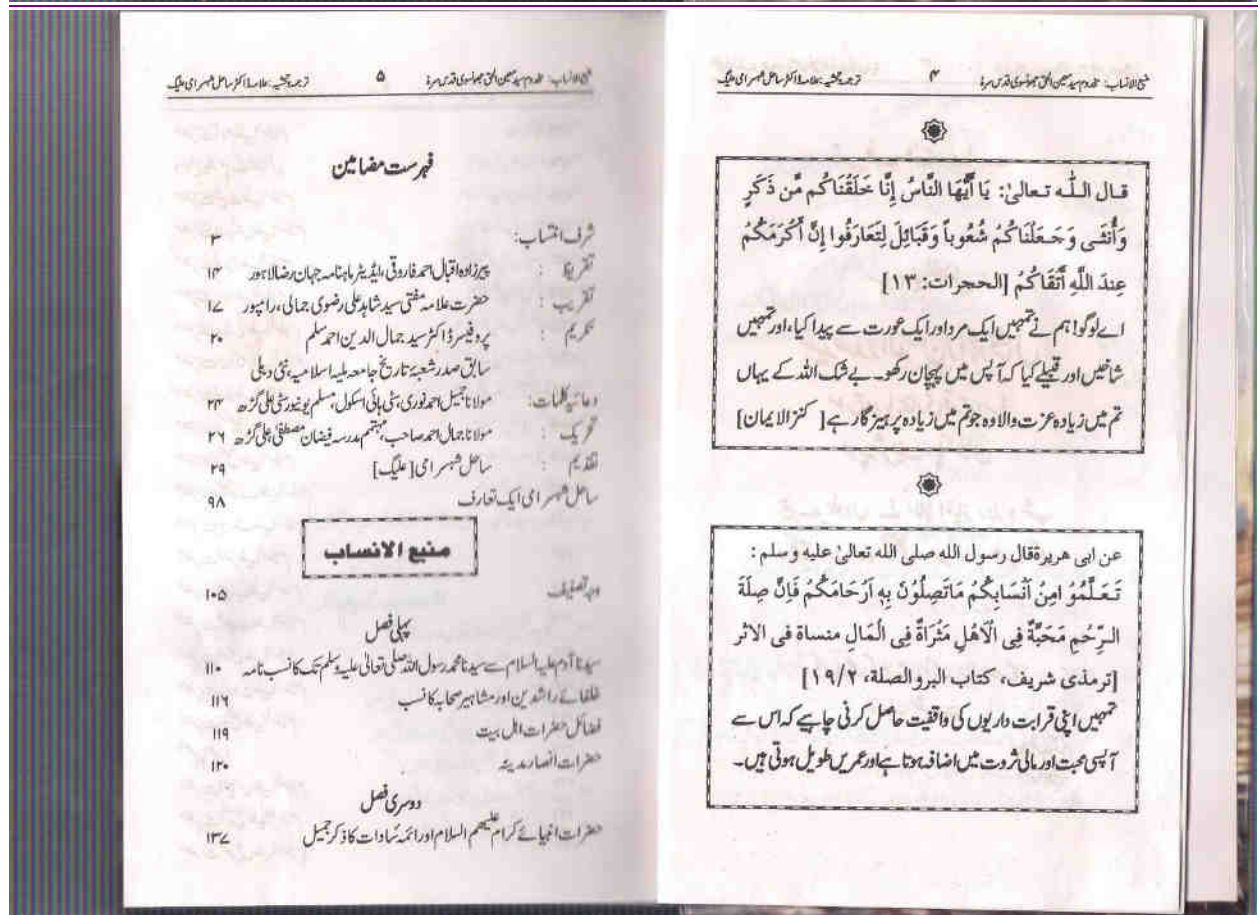 منبع الانساب: مخدوم سید معین الحق جھونسوی قدس سرہٗ ۴ ترجمہ وتحشیہ: علامہ ڈاکٹر ساحل شہسرامی علیگ
قال اللّٰه تعالىٰ: يَا أَيُّهَا النَّاسُ إِنَّا خَلَقْنَاكُم مِّن ذَكَرٍ
وَأُنثَى وَجَعَلْنَاكُمْ شُعُوباً وَقَبَائِلَ لِتَعَارَفُوا إِنَّ أَكْرَمَكُمْ
عِندَ اللَّهِ أَتْقَاكُمْ [الحجرات: ١٣]
اے لوگو! ہم نے تمہیں ایک مرد اور ایک عورت سے پیدا کیا، اور تمہیں
شاخیں اور قبیلے کیا کہ آپس میں پہچان رکھو۔ بے شک اللہ کے یہاں
تم میں زیادہ عزت والا وہ جو تم میں زیادہ پرہیزگار ہے [کنز الایمان]
عن ابی هريرة قال رسول الله صلى الله تعالىٰ عليه وسلم:
تَعَلَّمُوْ امِنْ اَنْسَابِكُمْ مَاتَصِلُوْنَ بِهٖ اَرْحَامَكُمْ فَاِنَّ صِلَةَ
الرِّحْمِ مَحَبَّةٌ فِى الْاَهْلِ مَثْرَاةٌ فِى الْمَالِ منساة فى الاثر
[ترمذى شريف، كتاب البر والصلة، ١٩/٢]
تمہیں اپنی قرابت داریوں کی واقفیت حاصل کرنی چاہیے کہ اس سے
آپسی محبت اور مالی ثروت میں اضافہ ہوتا ہے اور عمریں طویل ہوتی ہیں۔
منبع الانساب: مخدوم سید معین الحق جھونسوی قدس سرہٗ ۵ ترجمہ وتحشیہ: علامہ ڈاکٹر ساحل شہسرامی علیگ
فہرست مضامین
شرف انتساب: ۳
تقریظ : پیرزادہ اقبال احمد فاروقی، ایڈیٹر ماہنامہ جہان رضا لاہور ۱۴
تقریب : حضرت علامہ مفتی سید شاہد علی رضوی جمالی، رامپور ۱۷
تکریم : پروفیسر ڈاکٹر سید جمال الدین احمد سلم ۲۰
سابق صدر شعبۂ تاریخ جامعہ ملیہ اسلامیہ، نئی دہلی
دعائیہ کلمات: مولانا جمیل احمد نوری، سٹی ہائی اسکول، مسلم یونیورسٹی علی گڑھ ۲۴
تحریک : مولانا جمال احمد صاحب، مہتمم مدرسہ فیضان مصطفیٰ علی گڑھ ۲۶
تقدیم : ساحل شہسرامی [علیگ] ۲۹
ساحل شہسرامی ایک تعارف ۹۸
منبع الانساب
وجہ تصنیف ۱۰۵
پہلی فصل
سیدنا آدم علیہ السلام سے سیدنا محمد رسول اللہ صلی تعالیٰ علیہ وسلم تک کا نسب نامہ ۱۱۰
خلفائے راشدین اور مشاہیر صحابہ کا نسب ۱۱۶
فضائل حضرات اہل بیت ۱۱۹
حضرات انصار مدینہ ۱۲۰
دوسری فصل
حضرات انبیائے کرام علیہم السلام اور ائمہ سادات کا ذکر جمیل ۱۳۷